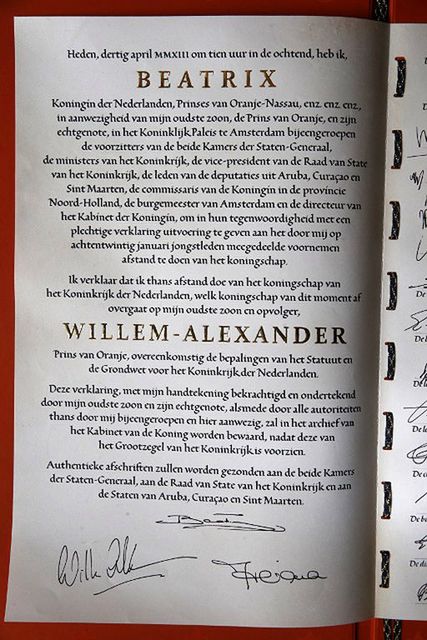 Heden, dertig april MMXIII om tien uur in de ochtend, heb ik,
BEATRIX
Koningin der Nederlanden, Prinses van Oranje-Nassau, enz. enz. enz.,
in aanwezigheid van mijn oudste zoon, de Prins van Oranje, en zijn
echtgenote, in het Koninklijk Paleis te Amsterdam bijeengeroepen
de voorzitters van de beide Kamers der Staten-Generaal,
de ministers van het Koninkrijk, de vice-president van de Raad van State
van het Koninkrijk, de leden van de deputaties uit Aruba, Curaçao en
Sint Maarten, de commissaris van de Koningin in de provincie
Noord-Holland, de burgemeester van Amsterdam en de directeur van
het Kabinet der Koningin, om in hun tegenwoordigheid met een
plechtige verklaring uitvoering te geven aan het door mij op
achtentwintig januari jongstleden meegedeelde voornemen
afstand te doen van het koningschap.
Ik verklaar dat ik thans afstand doe van het koningschap van
het Koninkrijk der Nederlanden, welk koningschap van dit moment af
overgaat op mijn oudste zoon en opvolger,
WILLEM-ALEXANDER
Prins van Oranje, overeenkomstig de bepalingen van het Statuut en
de Grondwet voor het Koninkrijk der Nederlanden.
Deze verklaring, met mijn handtekening bekrachtigd en ondertekend
door mijn oudste zoon en zijn echtgenote, alsmede door alle autoriteiten
thans door mij bijeengeroepen en hier aanwezig, zal in het archief van
het Kabinet van de Koning worden bewaard, nadat deze van
het Grootzegel van het Koninkrijk is voorzien.
Authentieke afschriften zullen worden gezonden aan de beide Kamers
der Staten-Generaal, aan de Raad van State van het Koninkrijk en aan
de Staten van Aruba, Curaçao en Sint Maarten.